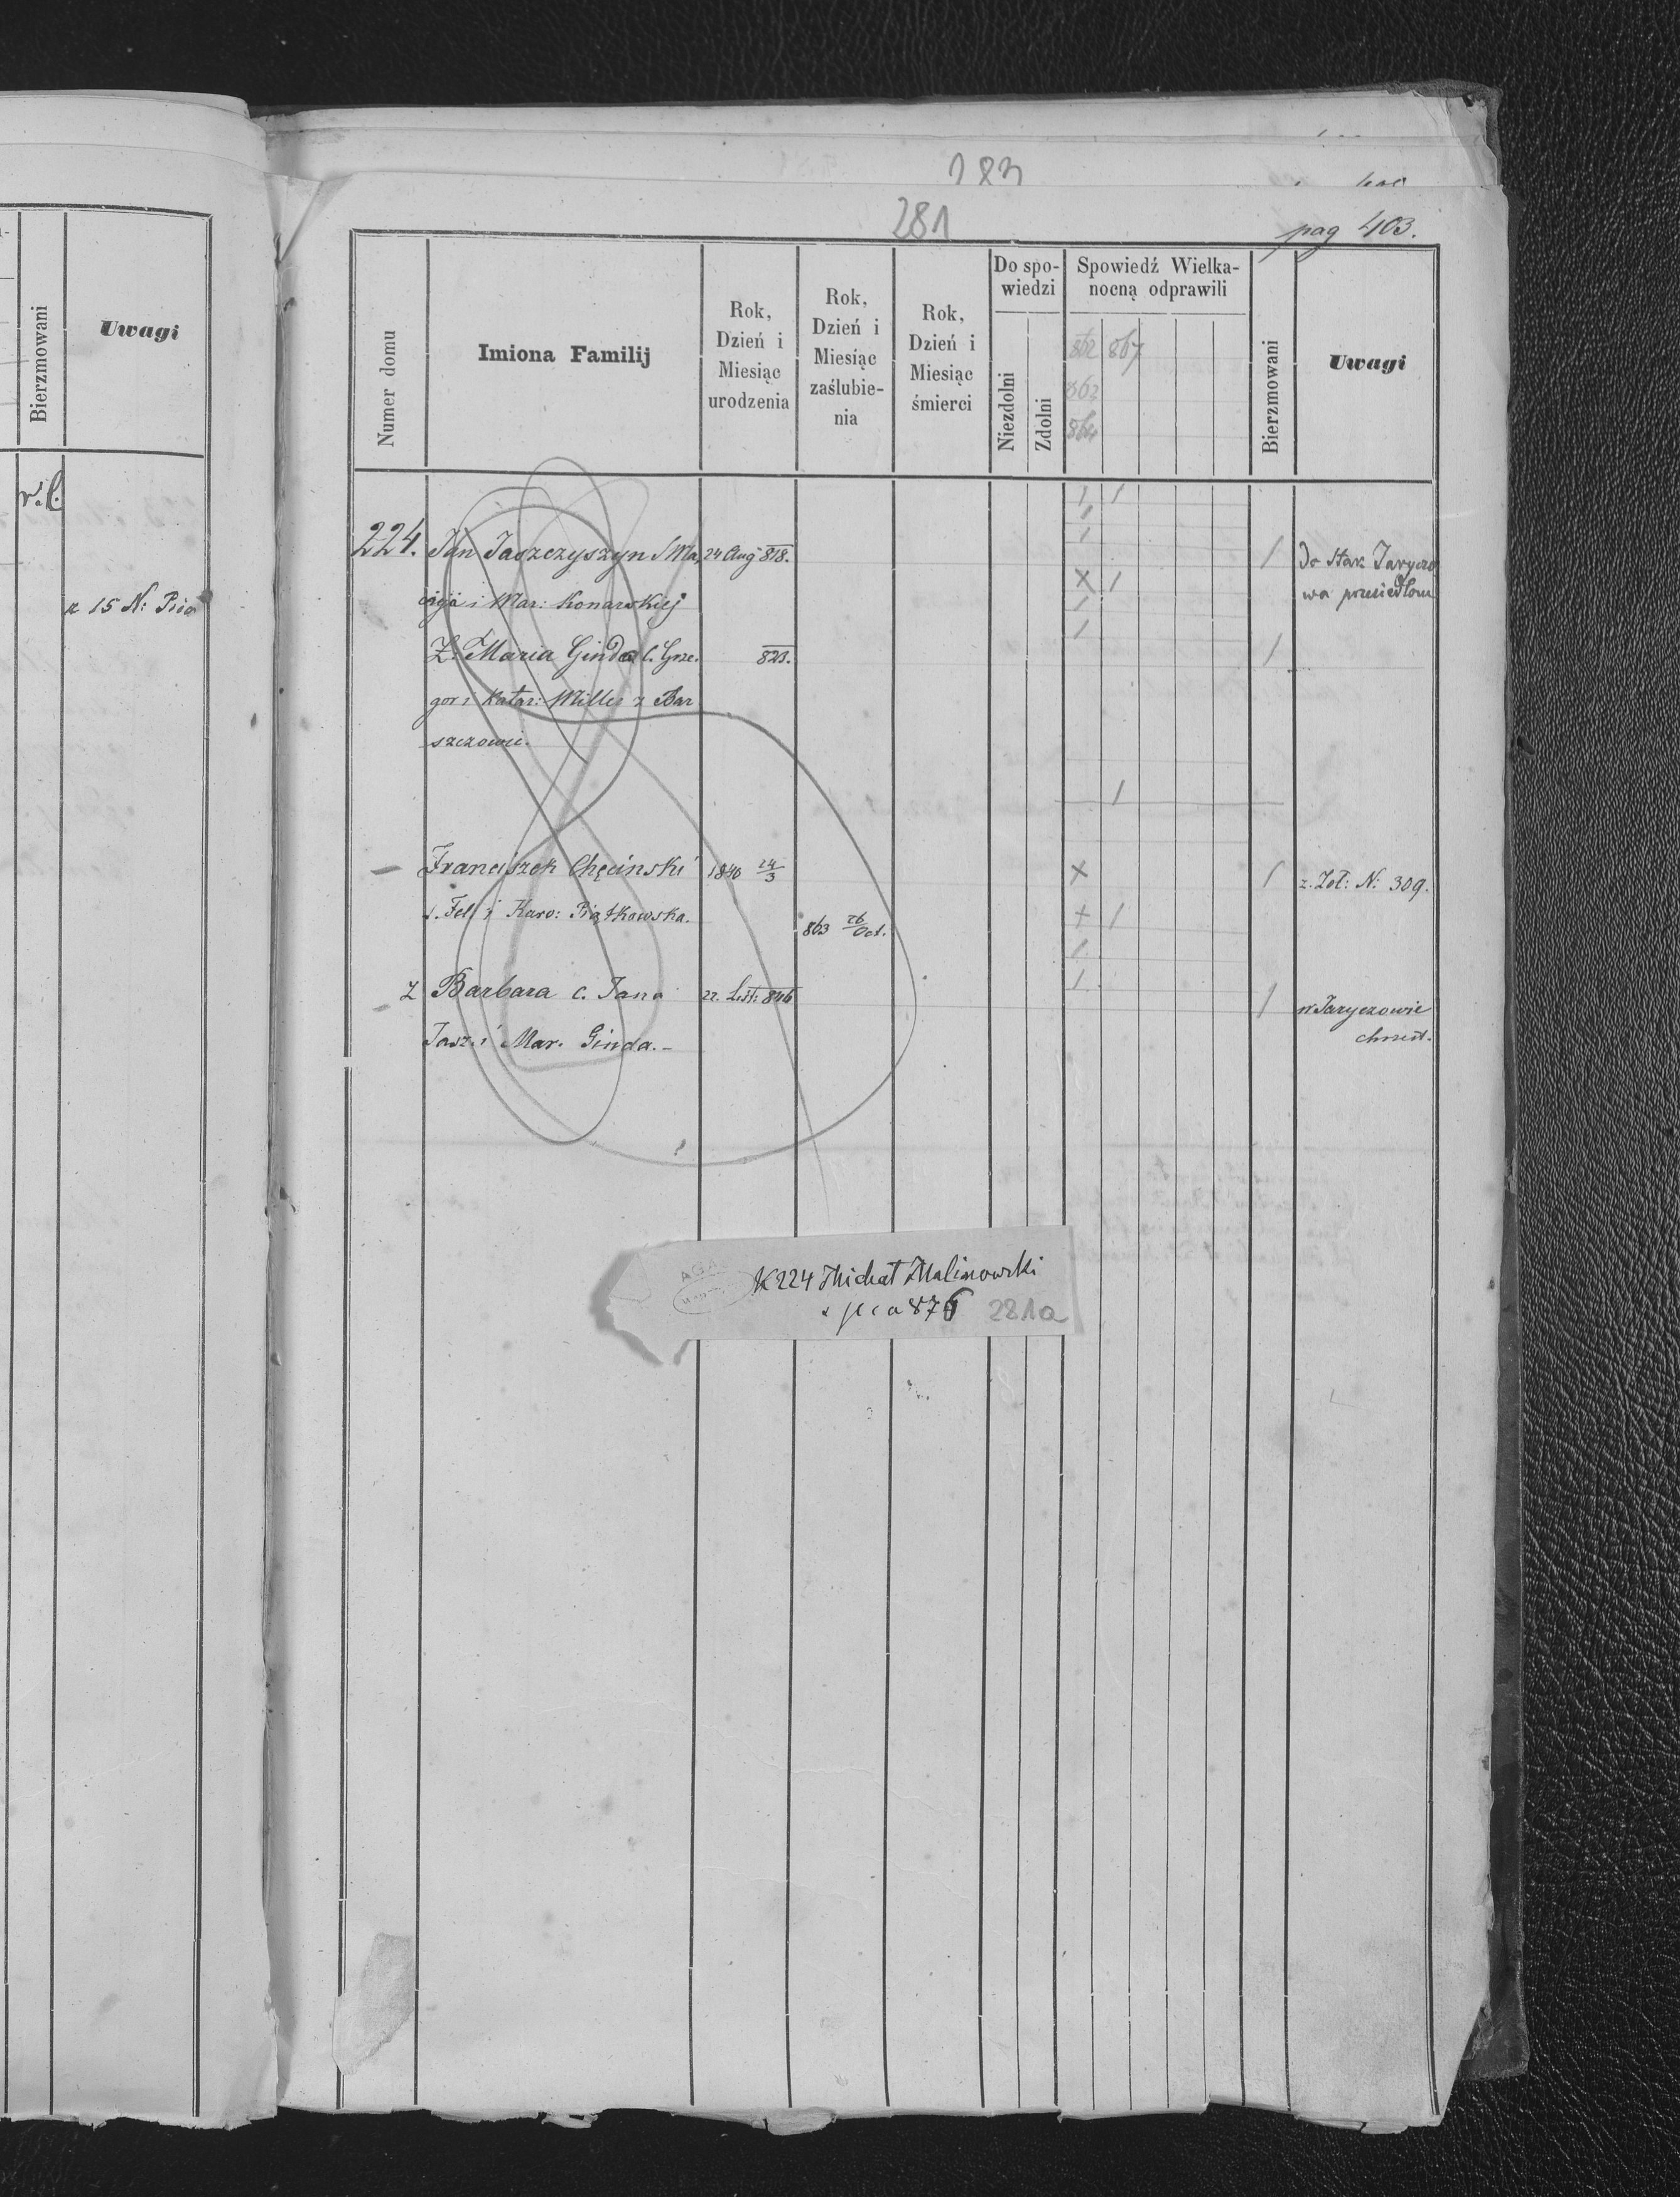 Bierzmowani
Uwagi
r. l.
z 15 N:
183
281
pag 403.
Numer domu
Imiona Familij
Rok, Dzień i Miesiąc urodzenia
Rok, Dzień i Miesiąc zaślubienia
Rok, Dzień i Miesiąc śmierci
Do spowiedzi
Niezdolni
Zdolni
Spowiedź Wielkanocną odprawili
862 867
863
864
Bierzmowani
Uwagi
224. Jan Jaszczyszyn S Ma, 24 Aug 818. Do Star. Jaryczo
cieja i Mar: Konarskiej wa przesiedlony
Ż. Maria Ginda C. Grze. 823.
gor i Katar: Willer z Bar
szczowic.
— Franciszek Chęcinski 1840 24/3 z. Żoł: N: 309.
s. Fel. i Karo: Piątkowska. 863 26/Oct.
Ż Barbara c. Jana 22. List: 846 w Jaryczowie
Jasz. i Mar. Ginda. - chrzest.
K 224 Michał Malinowski
876 281a